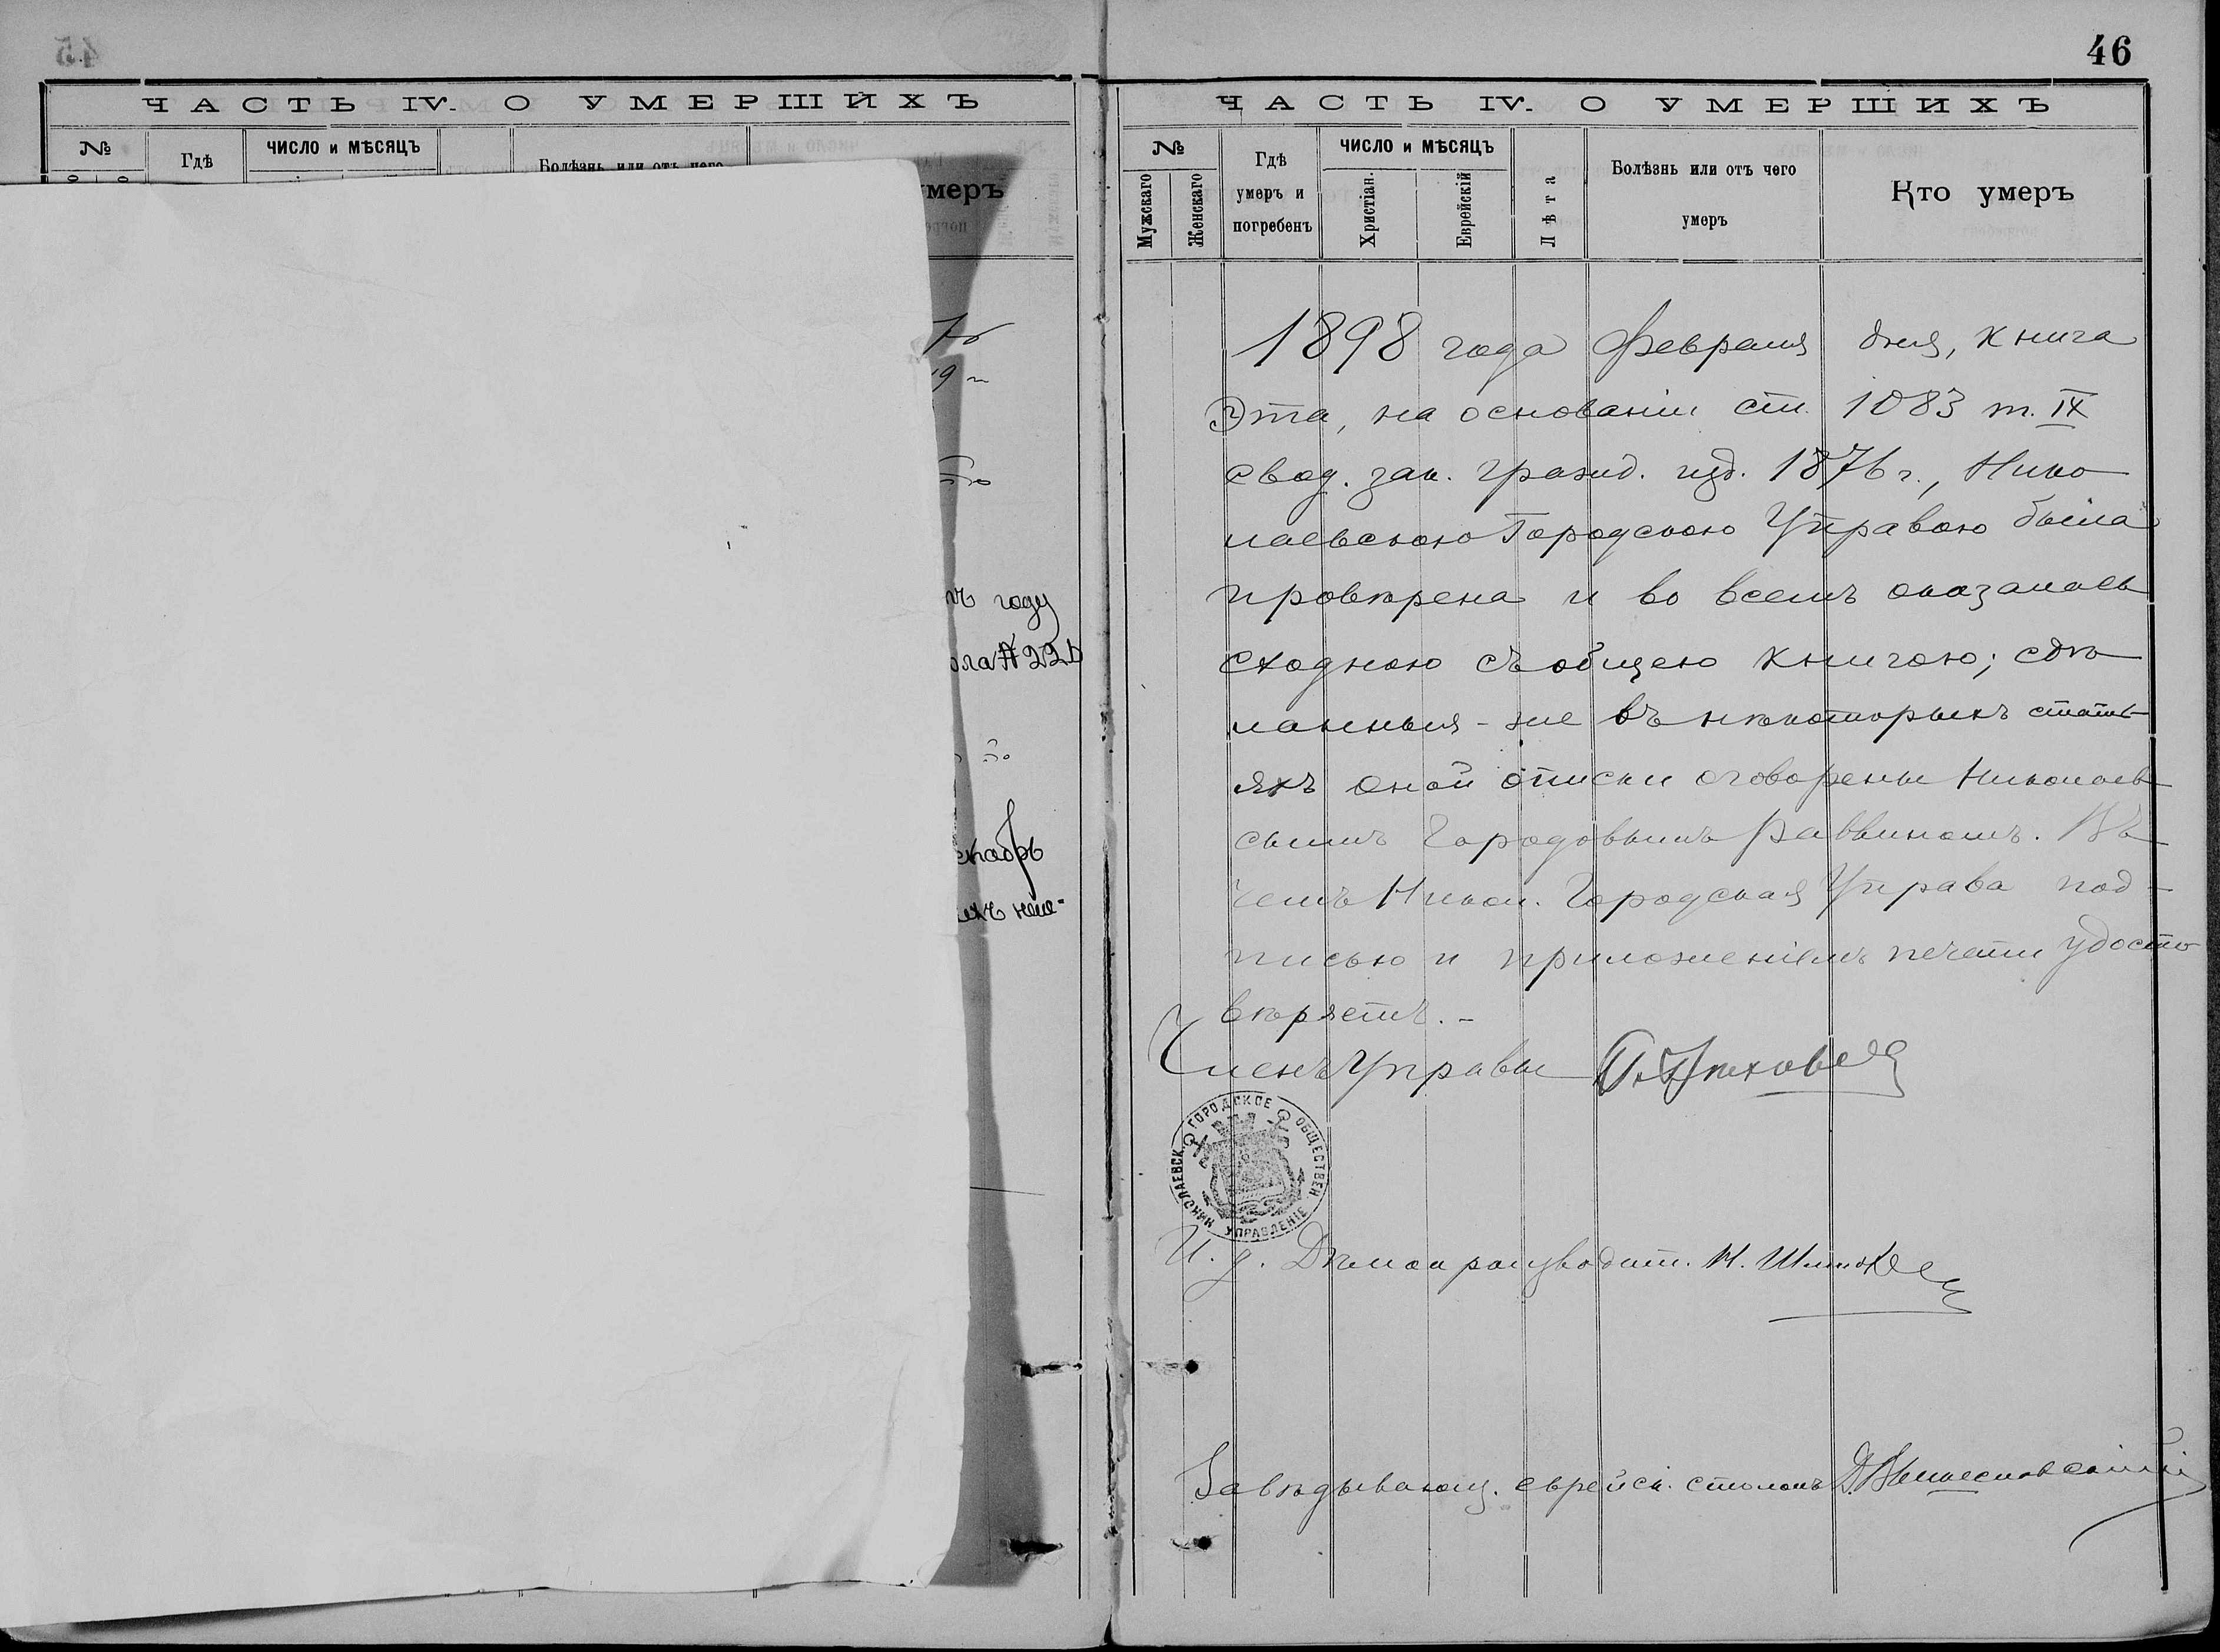 45
ЧАСТЬ IV. О УМЕРШИХЪ
№
Гдѣ
ЧИСЛО и МѢСЯЦЪ
Болѣзнь или отъ чего
умеръ
году
46
ЧАСТЬ IV. О УМЕРШИХЪ
№
Мужскаго
Женскаго
Гдѣ
умеръ и
погребенъ
ЧИСЛО и МѢСЯЦЪ
Христіан.
Еврейскій
Лѣта
Болѣзнь или отъ чего
умеръ
Кто умеръ
1898 года Февраля дня, книга
Эта, на основаніи ст. 1083 т. IX
свод. зак. гражд. изд. 1876 г., Нико
лаевскою Городскою Управою была
провѣрена и во всемъ оказалась
сходною съ общею книгою; сдѣ
ланныя-же въ нѣкоторыхъ стать
яхъ оной описки оговорены Николаев
скимъ Городовымъ Раввиномъ. Въ
чемъ Никол. Городская Управа под-
писью и приложеніемъ печати удосто
вѣряетъ.-
Членъ Управы
НИКОЛАЕВСК. ГОРОДСКОЕ ОБЩЕСТВЕН. УПРАВЛЕНІЕ
И. д. Дѣлопроизводит. Н.
Завѣдывающ. еврейск. столомъ